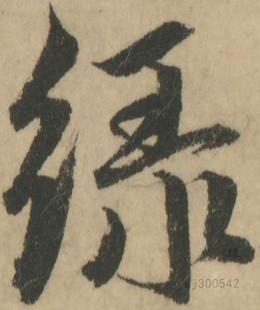 緑
j300542